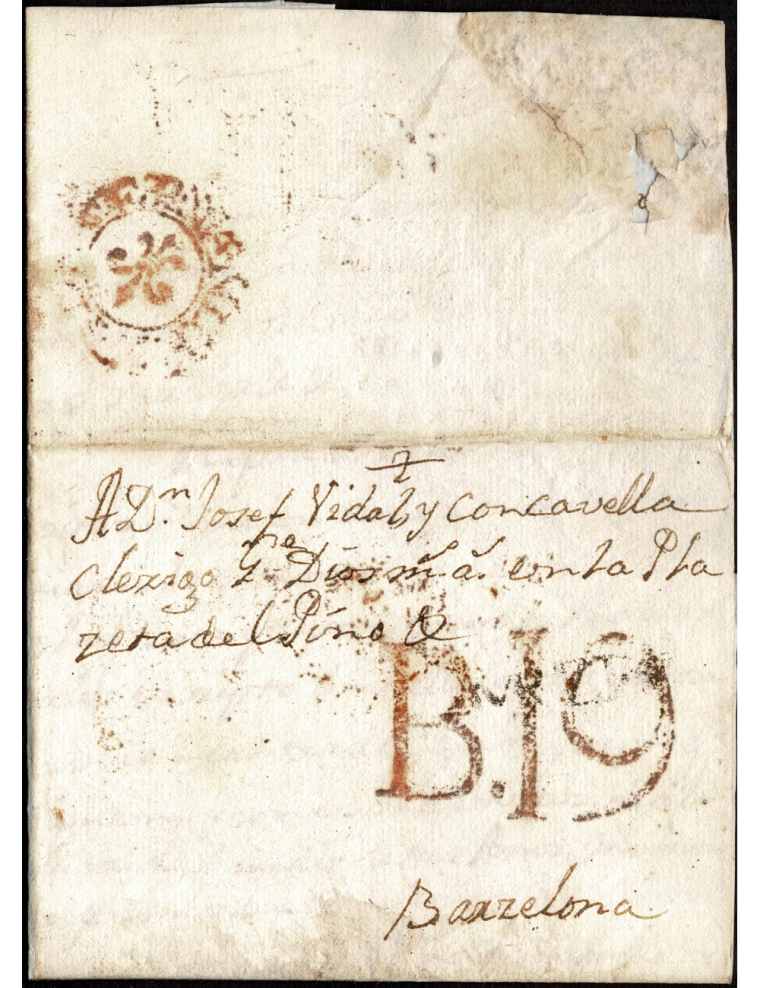 A D.n Josef Vidal, y Concavella
Clerizo q.e Dios m.s a.s en la Pla
zeta del Pino &
B.19
Barzelona